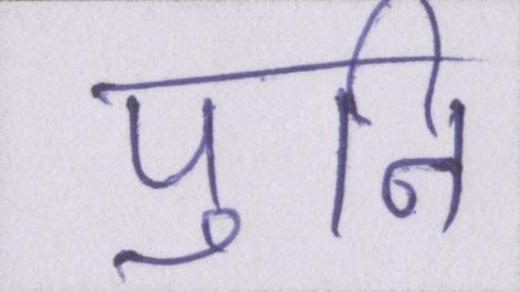 पुनि